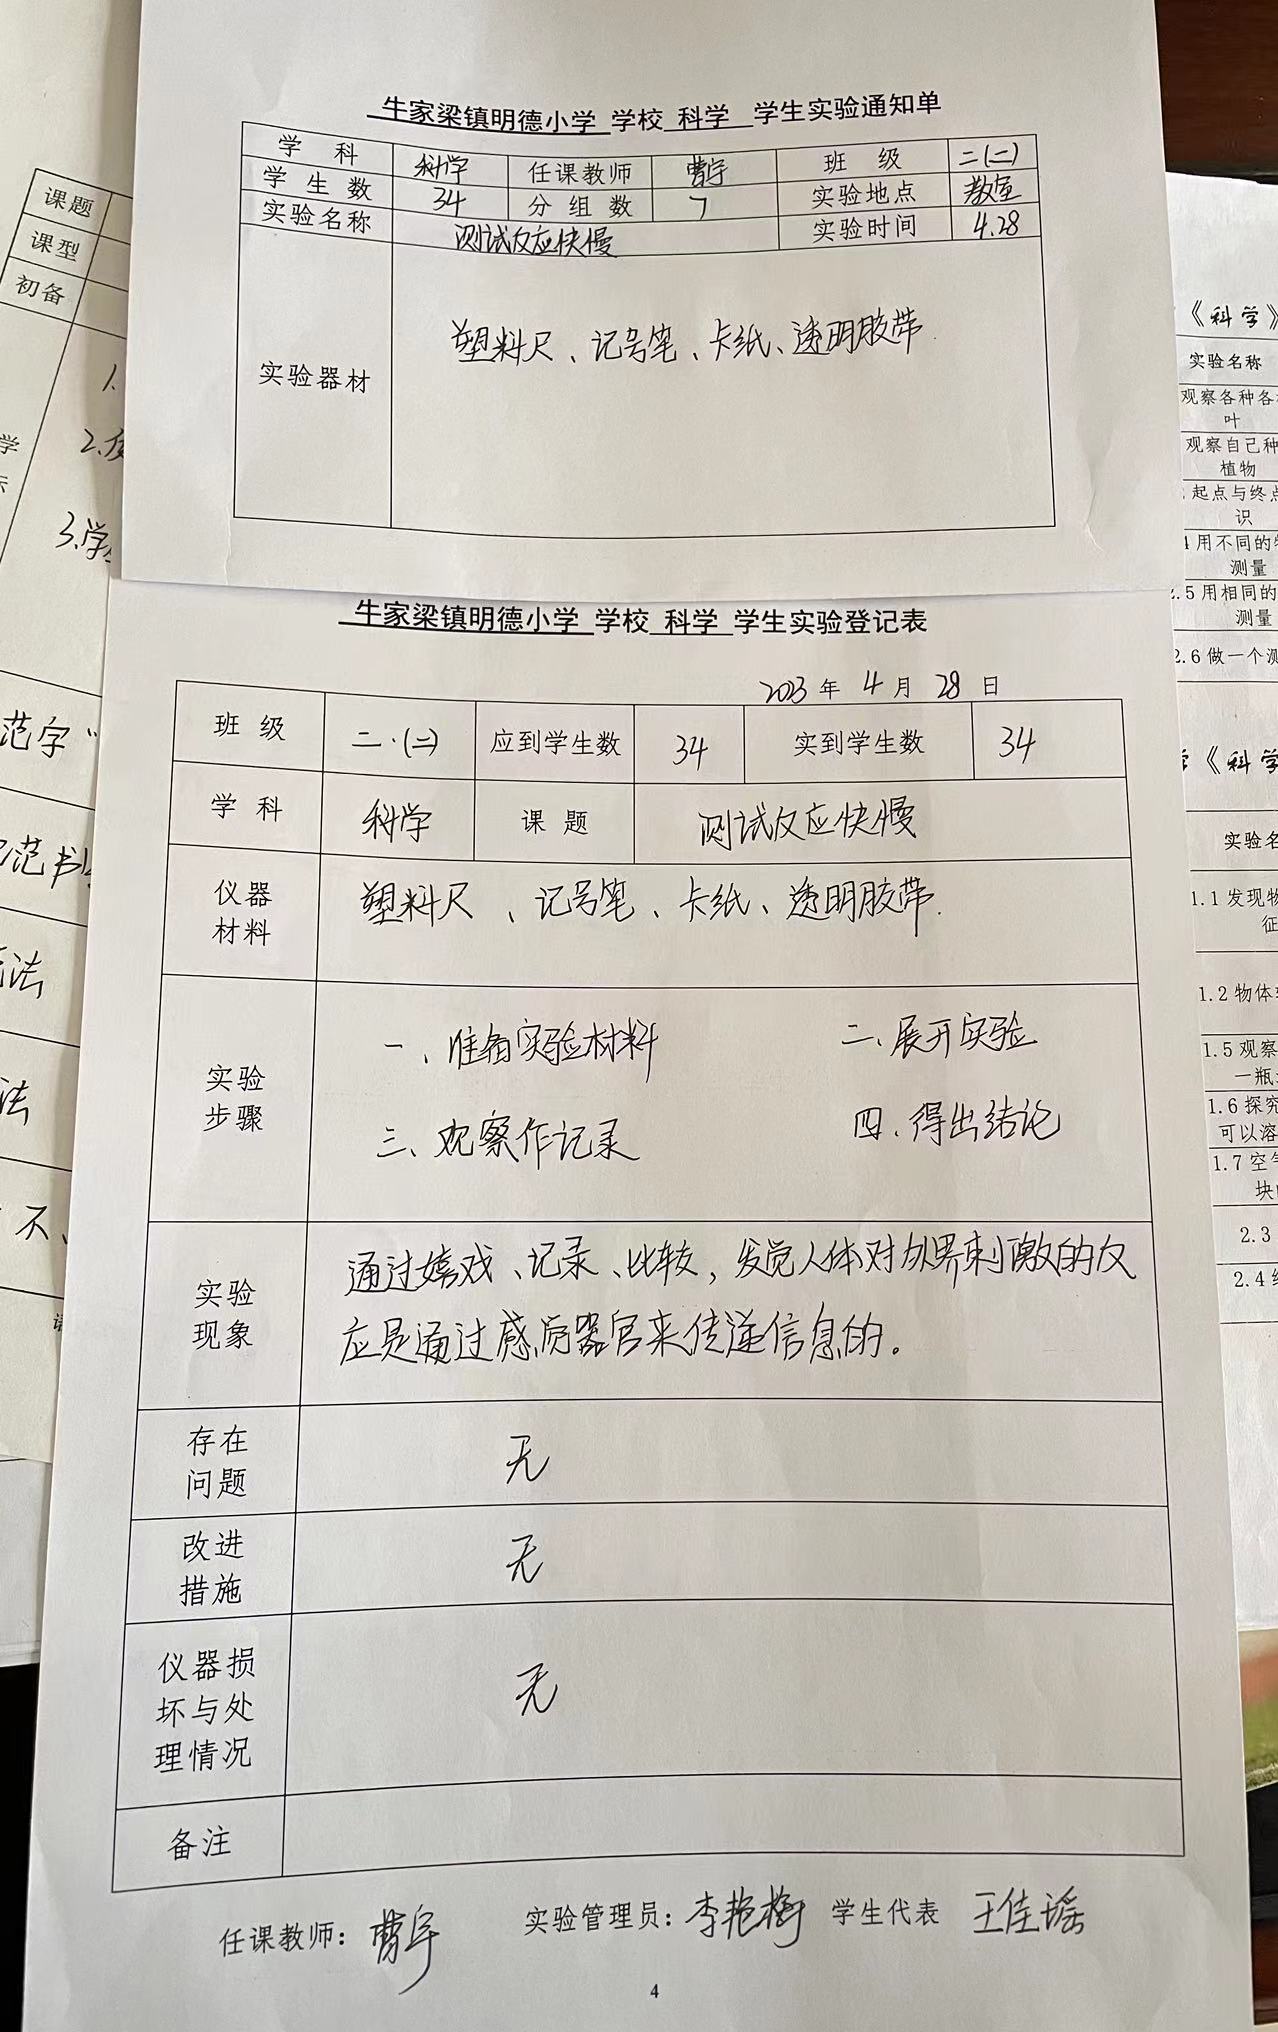 牛家梁镇明德小学 学校 科学 学生实验通知单
学 科 科学 任课教师 曹宇 班 级 二(二)
学 生 数 34 分 组 数 7 实验地点 教室
实验名称 测试反应快慢 实验时间 4.28
实验器材 塑料尺、记号笔、卡纸、透明胶带.
牛家梁镇明德小学 学校 科学 学生实验登记表
2023 年 4 月 28 日
班 级 二·(二) 应到学生数 34 实到学生数 34
学 科 科学 课 题 测试反应快慢
仪器
材料
塑料尺、记号笔、卡纸、透明胶带.
实验
步骤
一、准备实验材料 二、展开实验
三、观察作记录 四、得出结论
实验
现象
通过嬉戏、记录、比较，发觉人体对外界刺激的反
应是通过感觉器官来传递信息的。
存在
问题
无
改进
措施
无
仪器损
坏与处
理情况
无
备注
任课教师：曹宇 实验管理员：李艳梅 学生代表 王佳瑶
4
课题
课型
初备
1.
2.
3.学
学
范字“
范书
法
法
不、
《科学》
实验名称
观察各种各
叶
观察自己种
植物
起点与终点
识
用不同的
测量
2.5 用相同的
测量
2.6 做一个测
《科学
实验名
1.1 发现物
征
1.2 物体
1.5 观察
一瓶
1.6 探究
可以溶
1.7 空气
块
2.3
2.4